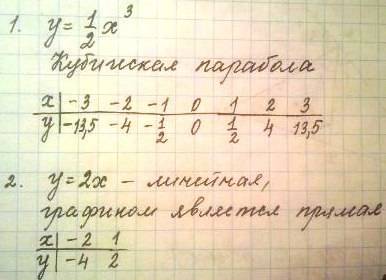 1. y = 1/2 x³
Кубическая парабола
x | -3 -2 -1 0 1 2 3
y | -13,5 -4 -1/2 0 1/2 4 13,5
2. y = 2x – линейная,
графиком является прямая
x | -2 1
y | -4 2